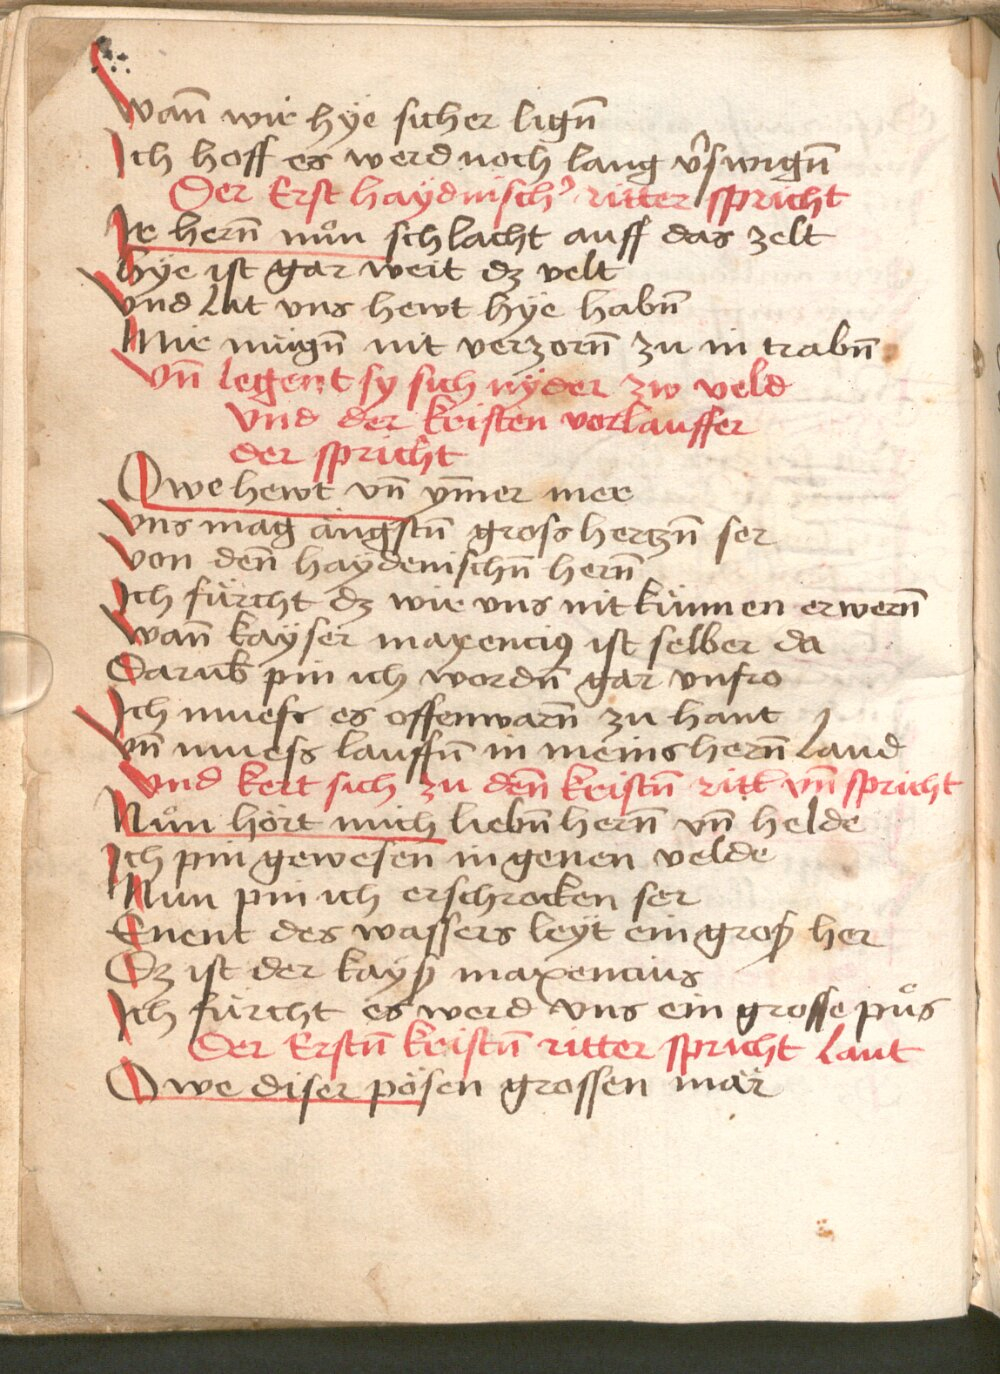 Wañ wir hÿe sicher lign̄
Ich hoff es werd noch lang v̾swign̄
Der Erst haÿdnisch̾ ritter spricht
Ir hern̄ nůn schlacht auff das zelt
Hÿe ist gar weit dz velt
Vnd Lat vns hewt hÿe habn̄
Mir mügn̄ nit verzorn̄ zu in trabn̄
Vn̄ legent sy sich nÿder zw veld
Vnd der kristen vorlauffer
der spricht
Owe hewt vn̄ ym̄er mer
Vns mag ängstn̄ gross hertzn̄ ser
Von den̄ haÿdenischn̄ hern̄
Ich fürcht dz wir vns nit künnen erwern̄
Wan̄ kaÿser maxenciꝰ ist selber da
Darub̄ pin ich wordn̄ gar vnfro
Ich muess es offenwarn̄ zu hant
Vn̄ muess lauffn̄ in meins hern̄ Land
Vnd kert sich zu den̄ kristn̄ ritt̾ vn̄ spricht
Nůn hört mich liebn̄ hern̄ vn̄ helde
Ich pin gewesen in genen velde
Nun pin ich erschrocken ser
Enent des wassers leÿt ein groß her
Dz ist der kaÿs̾ maxencius
Ich fürcht es werd vns ein grosse půs
Der Erstn̄ kristn̄ ritter spricht Laut
Owe diser pösen grossen mär